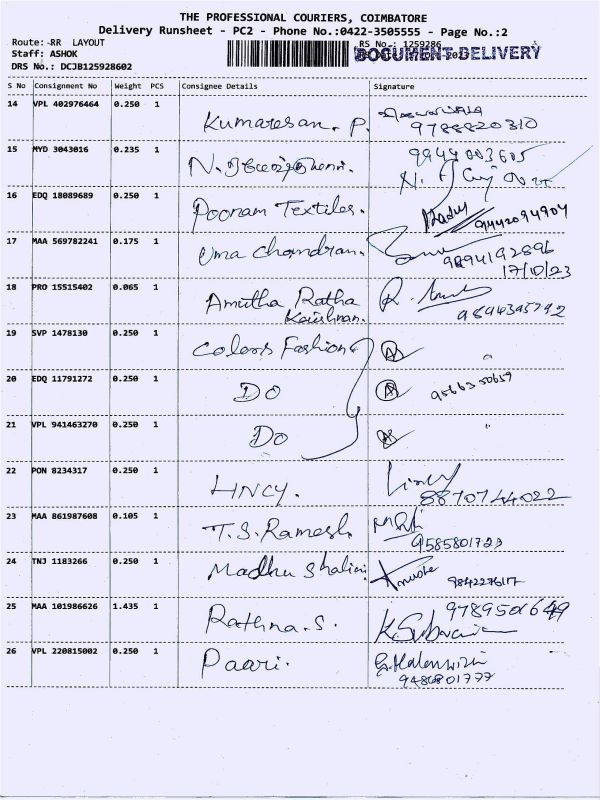 THE PROFESSIONAL COURIERS, COIMBATORE
Delivery Runsheet - PC2 - Phone No.:0422-3505555 - Page No.:2
Route:-RR LAYOUT RS No.: 1259286
Staff: ASHOK DOCUMENT DELIVERY
DRS No.: DCJB125928602
S No Consignment No Weight PCS Consignee Details Signature
14 VPL 402976464 0.250 1 Kumaresan. P.
9788820310
15 MYD 3043016 0.235 1 N. 9944003605
16 EDQ 18089689 0.250 1 Poonam Textiles.
9442094904
17 MAA 569782241 0.175 1 Uma Chandran.
9894192896
17/10/23
18 PRO 15515402 0.065 1 Amutha Ratha R.
Krishnan. 9894395792
19 SVP 1478130 0.250 1 Colors Fashions "
20 EDQ 11791272 0.250 1 DO 9566350659
21 VPL 941463270 0.250 1 DO "
22 PON 8234317 0.250 1 LINCY. Lincy
8870744022
23 MAA 861987608 0.105 1 T.S. Ramesh
9585801723
24 TNJ 1183266 0.250 1 Madhu Shalini 9842276117
25 MAA 101986626 1.435 1 Rathna.S. 9789501649
26 VPL 220815002 0.250 1 Paari.
9486801777